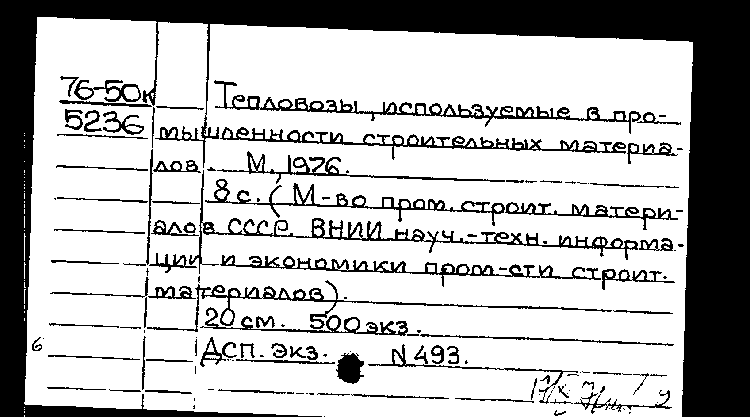 76-50к
5236
Тепловозы, используемые в про-
мышленности строительных материа-
лов. М., 1976.
8 с. (М-во пром. строит. матери-
алов СССР. ВНИИ науч.-техн. информа-
ции и экономики пром-сти строит.
материалов).
20 см. 500 экз.
ДСП. Экз. N 493.
6